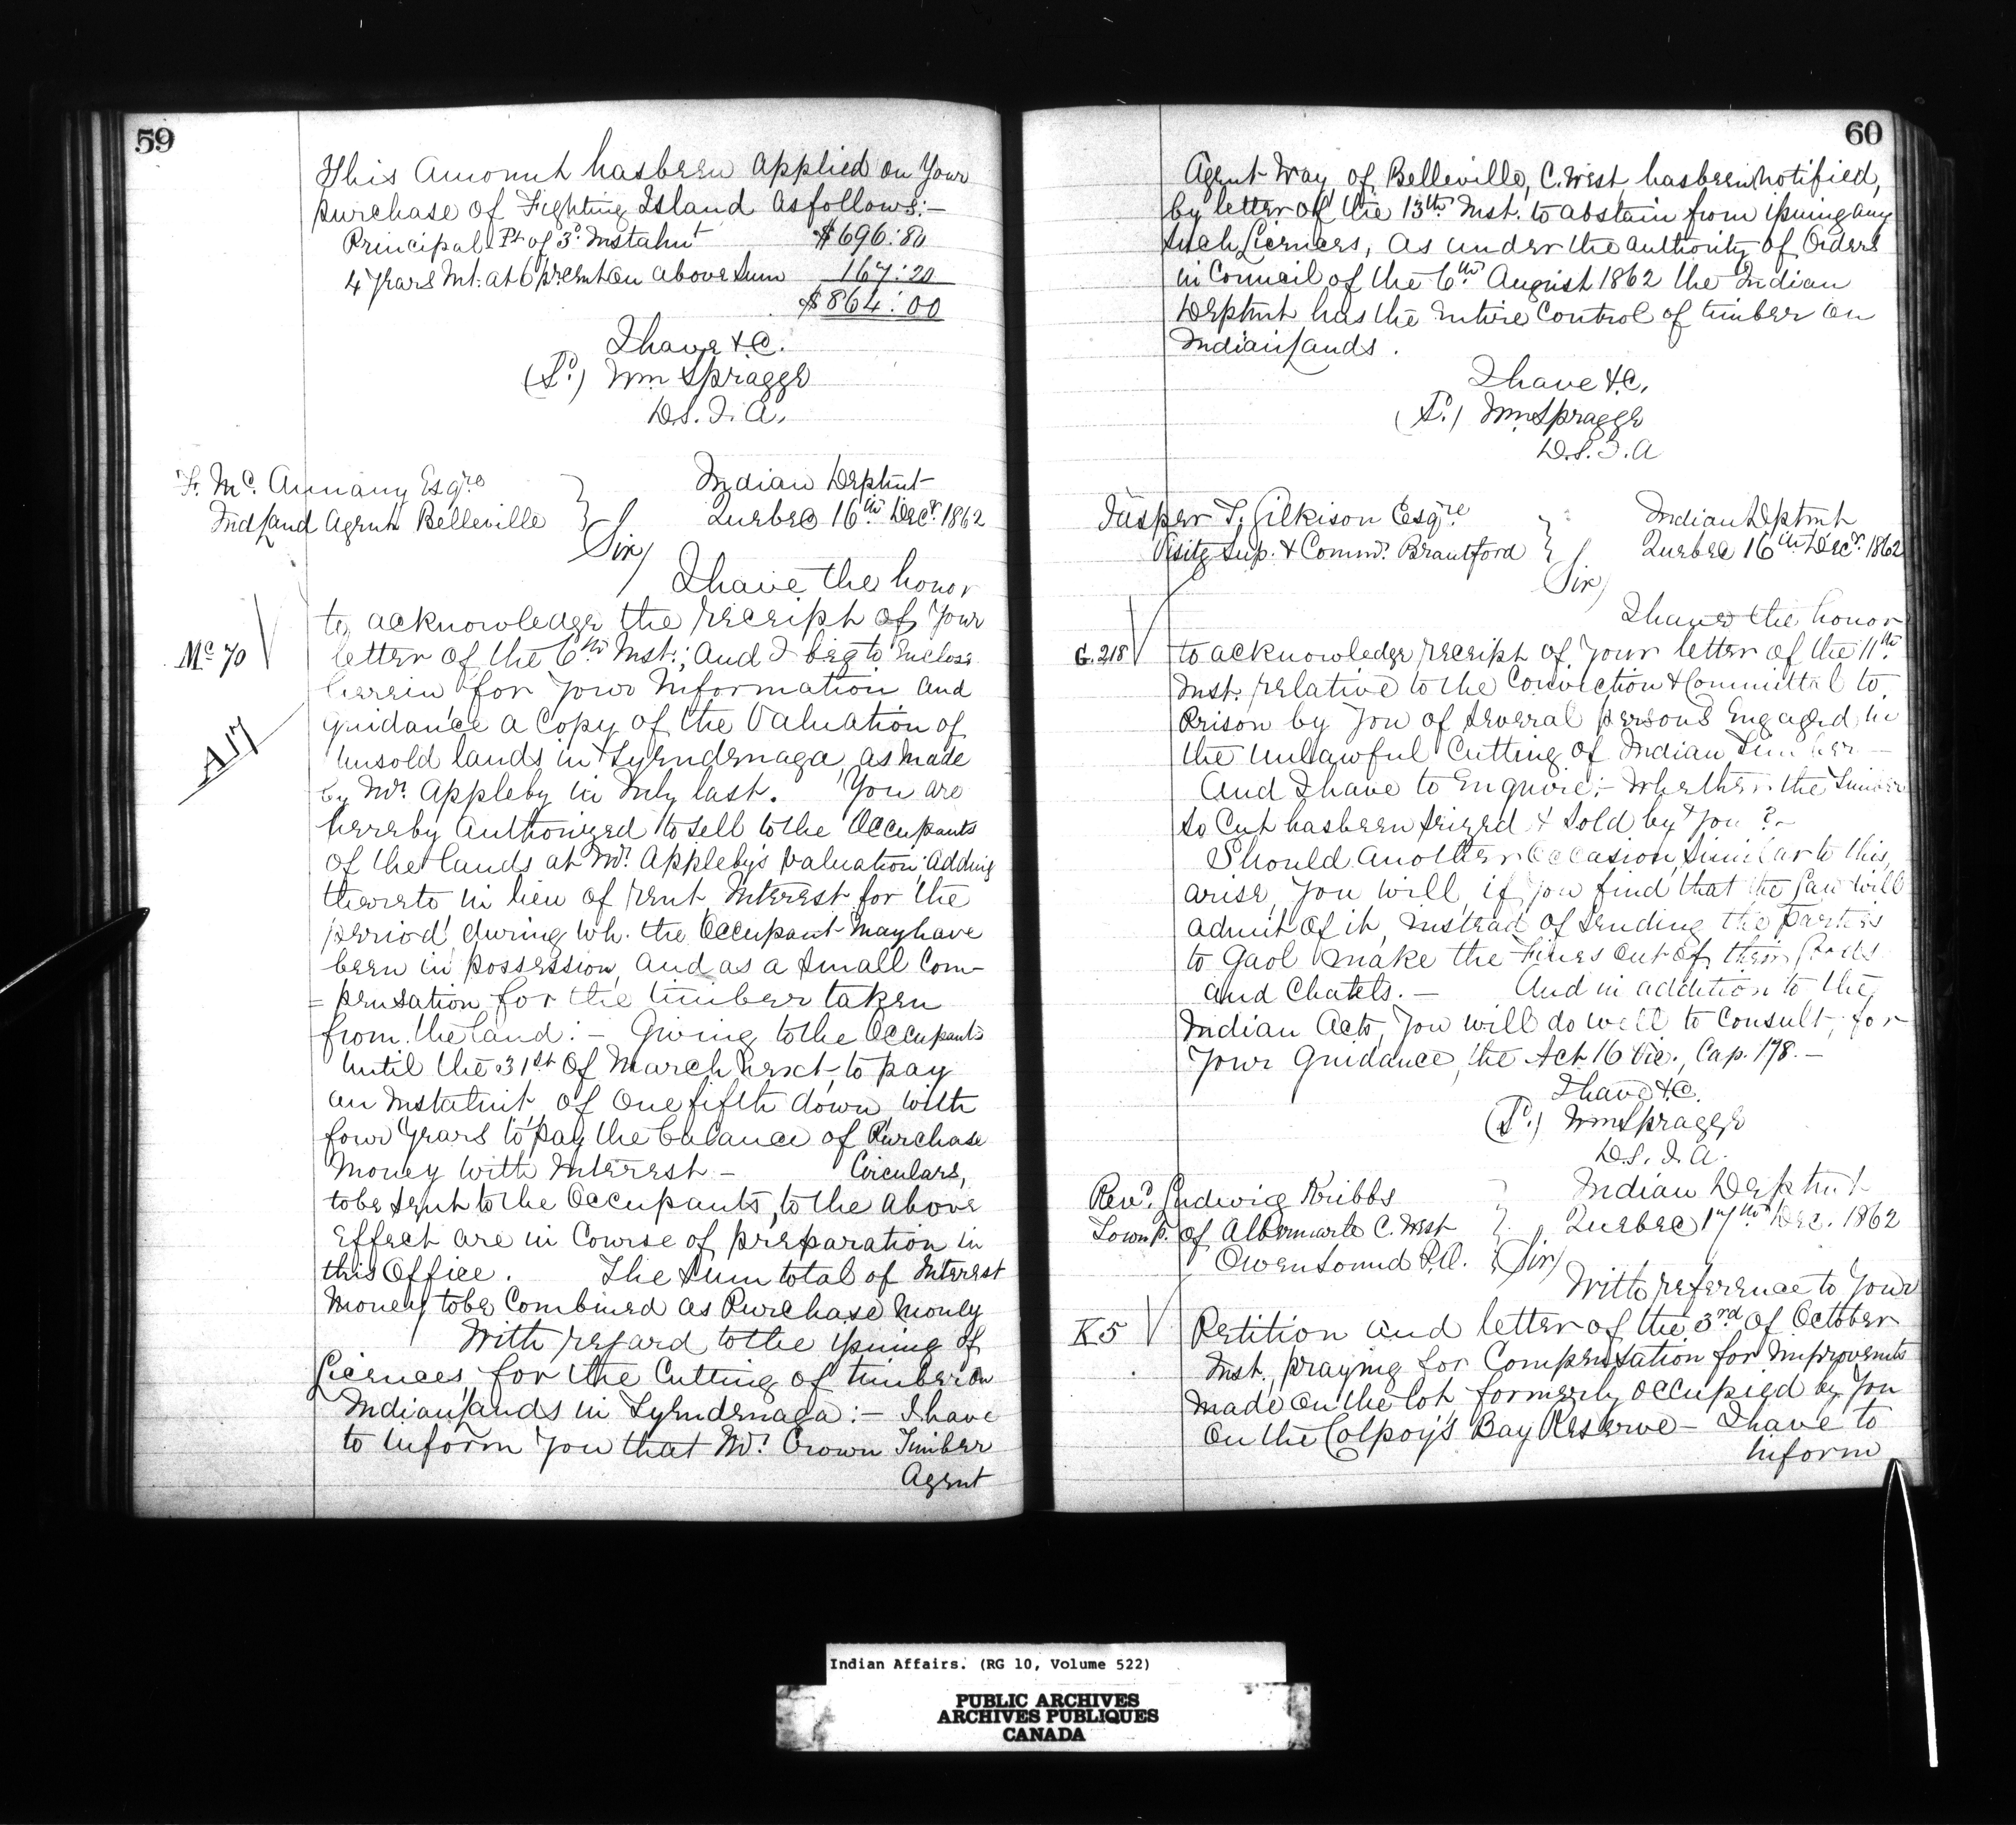 59
This Amount has been applied on Your
purchase of Fighting Island as follows:—
Principal Pt of 3d Instalmt $696:80
4 Years Int. at 6 pr cent on above sum 167:20
$864:00
I have &c.
(Sd) Wm Spragge
D.S.I.A.
F. Mc. Annany Esqre
Ind Land Agent Belleville
Indian Deptmt
Quebec 16th Decr. 1862
Sir/
I have the honor
Mc 70
to acknowledge the receipt of Your
letter of the 6th Inst.; And I beg to Enclose
herein for Your Information and
A17
guidance a Copy of the Valuation of
Unsold lands in Tyendenaga, as made
by Mr. Appleby in July last. You are
hereby Authorized to sell to the Occupants
of the lands at Mr. Appleby's valuation, Adding
thereto in lieu of rent, Interest for the
period, during wh. the Occupant may have
been in possession, and as a small Com-
=pensation for the timber taken
from the land:— Giving to the Occupants
until the 31st of March next, to pay
an Instalmt of One fifth down with
four Years to pay the balance of Purchase
Money with Interest — Circulars,
to be sent to the Occupants, to the above
Effect are in Course of preparation in
this Office. The sum total of Interest
Money to be Combined as Purchase Money
With regard to the issuing of
Licences, for the Cutting of timber on
Indian Lands in Tyendenaga:— I have
to inform You that Mr. Crown Timber
Agent
60
Agent Way, of Belleville, C. West has been notified,
by letter of the 13th Inst. to abstain from issuing any
such Licences, as under the authority of Orders
in Council of the 6th August 1862 the Indian
Deptmt has the Entire Control of timber on
Indian Lands.
I have &c,
(Sd.) Wm Spragge
D.S.I.A
Jasper T. Gilkison Esqre
Visitg Sup. & Commr. Brantford
Indian Deptmt
Quebec 16th Decr. 1862
Sir/
I have the honor
G. 218
to acknowledge receipt of Your letter of the 11th
Inst. relative to the Conviction & Committal to
Prison by You of several persons Engaged in
the Unlawful Cutting of Indian Timber —
And I have to Enquire;— Whether the Timber
so Cut has been seized & sold by You?—
Should another Occasion, similar to this,
arise, You will, if You find that the Law will
admit of it, instead of sending the Parties
to Gaol make the Fines out of their Goods
and Chatels. — And in addition to the
Indian Acts, You will do well to Consult, for
Your Guidance, the Act 16 Vic., Cap. 178.—
I have &c.
(Sd.) Wm Spragge
D.S.I.A.
Revd. Ludwig Kribbs
Townp. of Albemarle C. West
Owen Sound P.O.
Indian Deptmt
Quebec 17th Dec. 1862
Sir/
With reference to Your
K5
Petition and letter of the 3rd of October
Inst., praying for Compensation for Improvemts
made on the lot formerly occupied by You
on the Colpoy's Bay Reserve — I have to
Inform
Indian Affairs. (RG 10, Volume 522)
PUBLIC ARCHIVES
ARCHIVES PUBLIQUES
CANADA